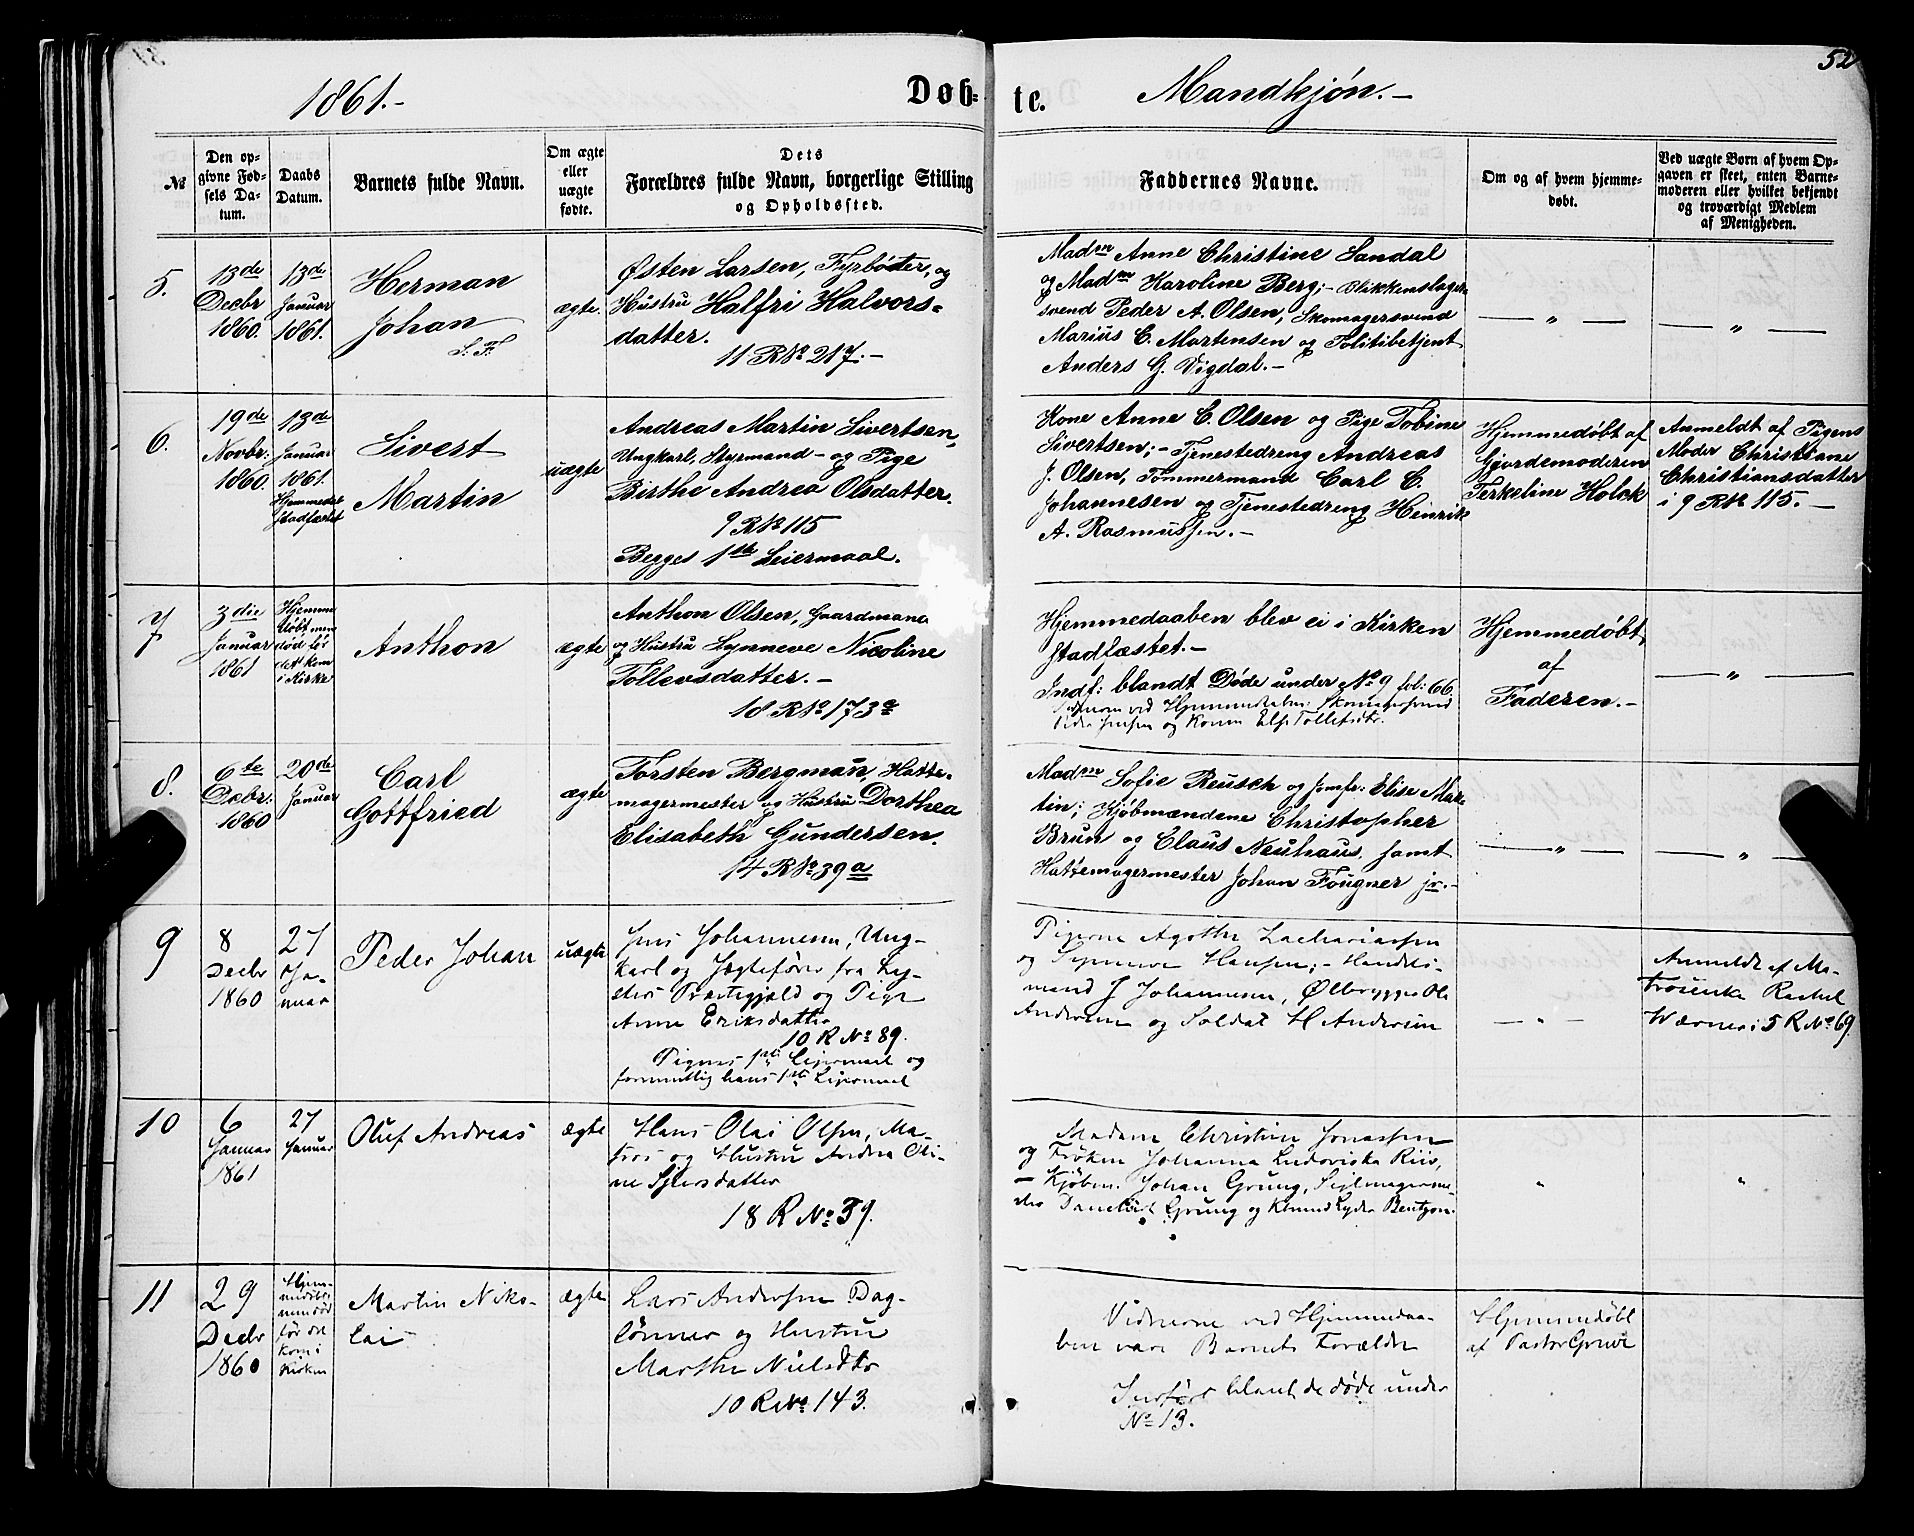 52
1861.-
Døb-
te.
Mandkjøn.-
№
Den op-
givne Fød-
sels Da-
tum.
Daabs
Datum.
Barnets fulde Navn.
Om ægte
eller
uægte
fødte.
Dets
Forældres fulde Navn, borgerlige Stilling
og Opholdssted.
Faddernes Navne.
Om og af hvem hjemme-
døbt.
Ved uægte Børn af hvem Op-
gaven er skeet, enten Barne-
moderen eller hvilket bekjendt
og troværdigt Medlem
af Menigheden.
5.
13de
Decbr
1860.
13de
Januar
1861.
Herman
Johan
S. F.
ægte.
Østen Larsen, Fyrbøder, og
Hustru Halfri Halvors-
datter.
11 R № 217.-
Madm Anne Christine Sandal
og Madm Karoline Berg;- Blikkenslager-
svend Peder A. Olsen, Skomagersvend
Marius C. Martensen og Politibetjent
Anders G. Vigdal.-
— " —
— " —
6.
19de
Novbr:
1860.
13de
Januar
1861.
Hjemmedbt
stadfæstet
Sivert
Martin
uægte
Andreas Martin Sivertsen,
Ungkarl, Styrmand - og Pige
Birthe Andrea Olsdatter.
9 R № 115
Begges 1ste Leiermaal.
Kone Anne C. Olsen og Pige Tobine
Sivertsen;- Tjenestedreng Andreas
J. Olsen, Tømmermand Carl C.
Johannesen og Tjenestedreng Henrik
A. Rasmussen.-
Hjemmedøbt af
Gjordemoderen
Terkeline Holck
Anmeldt af Pigens
Moder Christiane
Christiansdatter
i 9 R № 115.-
7
3die
Januar
1861
Hjemme
døbt men
død før
det kom
i Kirke
Anthon
ægte
Anthon Olsen, Gaardmand
og Hustru Synneve Nicoline
Tollevsdatter.-
18 R № 173a
Hjemmedaaben blev ei i Kirken
stadfæstet.-
Indf: blandt Døde under № 9 fol: 66.
ved Hjemmedaaben: Skomagersvend
Peder Jensen og Konen Else Tollefsdtr.
Hjemmedøbt
af
Faderen.-
— " —
8.
6te
Decbr:
1860
20de
Januar
Carl
Gottfried
ægte
Torsten Bergman, Hatte-
magermester og Hustru Dorthea
Elisabeth Gundersen.
14 R № 39a
Madm Sofie Reusch og Jomfr: Elise Mar-
tin; Kjøbmændene Christopher
Brun og Claus Neuhaus, samt
Hattemagermester Johan Fougner jr.-
— " —
— " —
9
8
Decbr
1860
27
Ja-
nuar
Peder Johan
uægte
Jens Johannesen, Ung-
karl og Jægtefører fra Ly-
sters Præstegjeld og Pige
Anne Eriksdatter
10 R № 89.
Pigens 1ste Leiermaal og
formentlig hans 1ste Leiermaal
Pigerne Agothe Zachariassen
og Synneve Hansen;- Handels-
mand J Johannesen, Ølbrygger Ole
Andersen og Soldat H Andersen
— " —
Anmeldt af Ma-
trosenke Rachel
Wærner i 5 R № 69.
10
6
Januar
1861
27
Januar
Oluf Andreas
ægte
Hans Olai Olsen, Ma-
tros og Hustru Andrea Oli-
ne Sjursdatter
18 R № 39.
Madam Christine Jonassen
og Frøken Johanna Ludoviska Riis,
- Kjøbm. Johan Grung, Seilmagerme-
ster Danckert Grung og Lyder Bentzon.
"
"
11
29
Decbr
1860
Hjem-
medøbt
men død
før det
kom i
Kirken
Martin Niko-
lai
ægte
Lars Andersen Dag-
lønner og Hustru
Marthe Nielsdtr
10 R № 143.
Vidnerne ved Hjemmedaa-
ben vare Barnets Forældre
Indført blant de døde under
№ 13.
Hjemmedøbt
af Pastor Grive